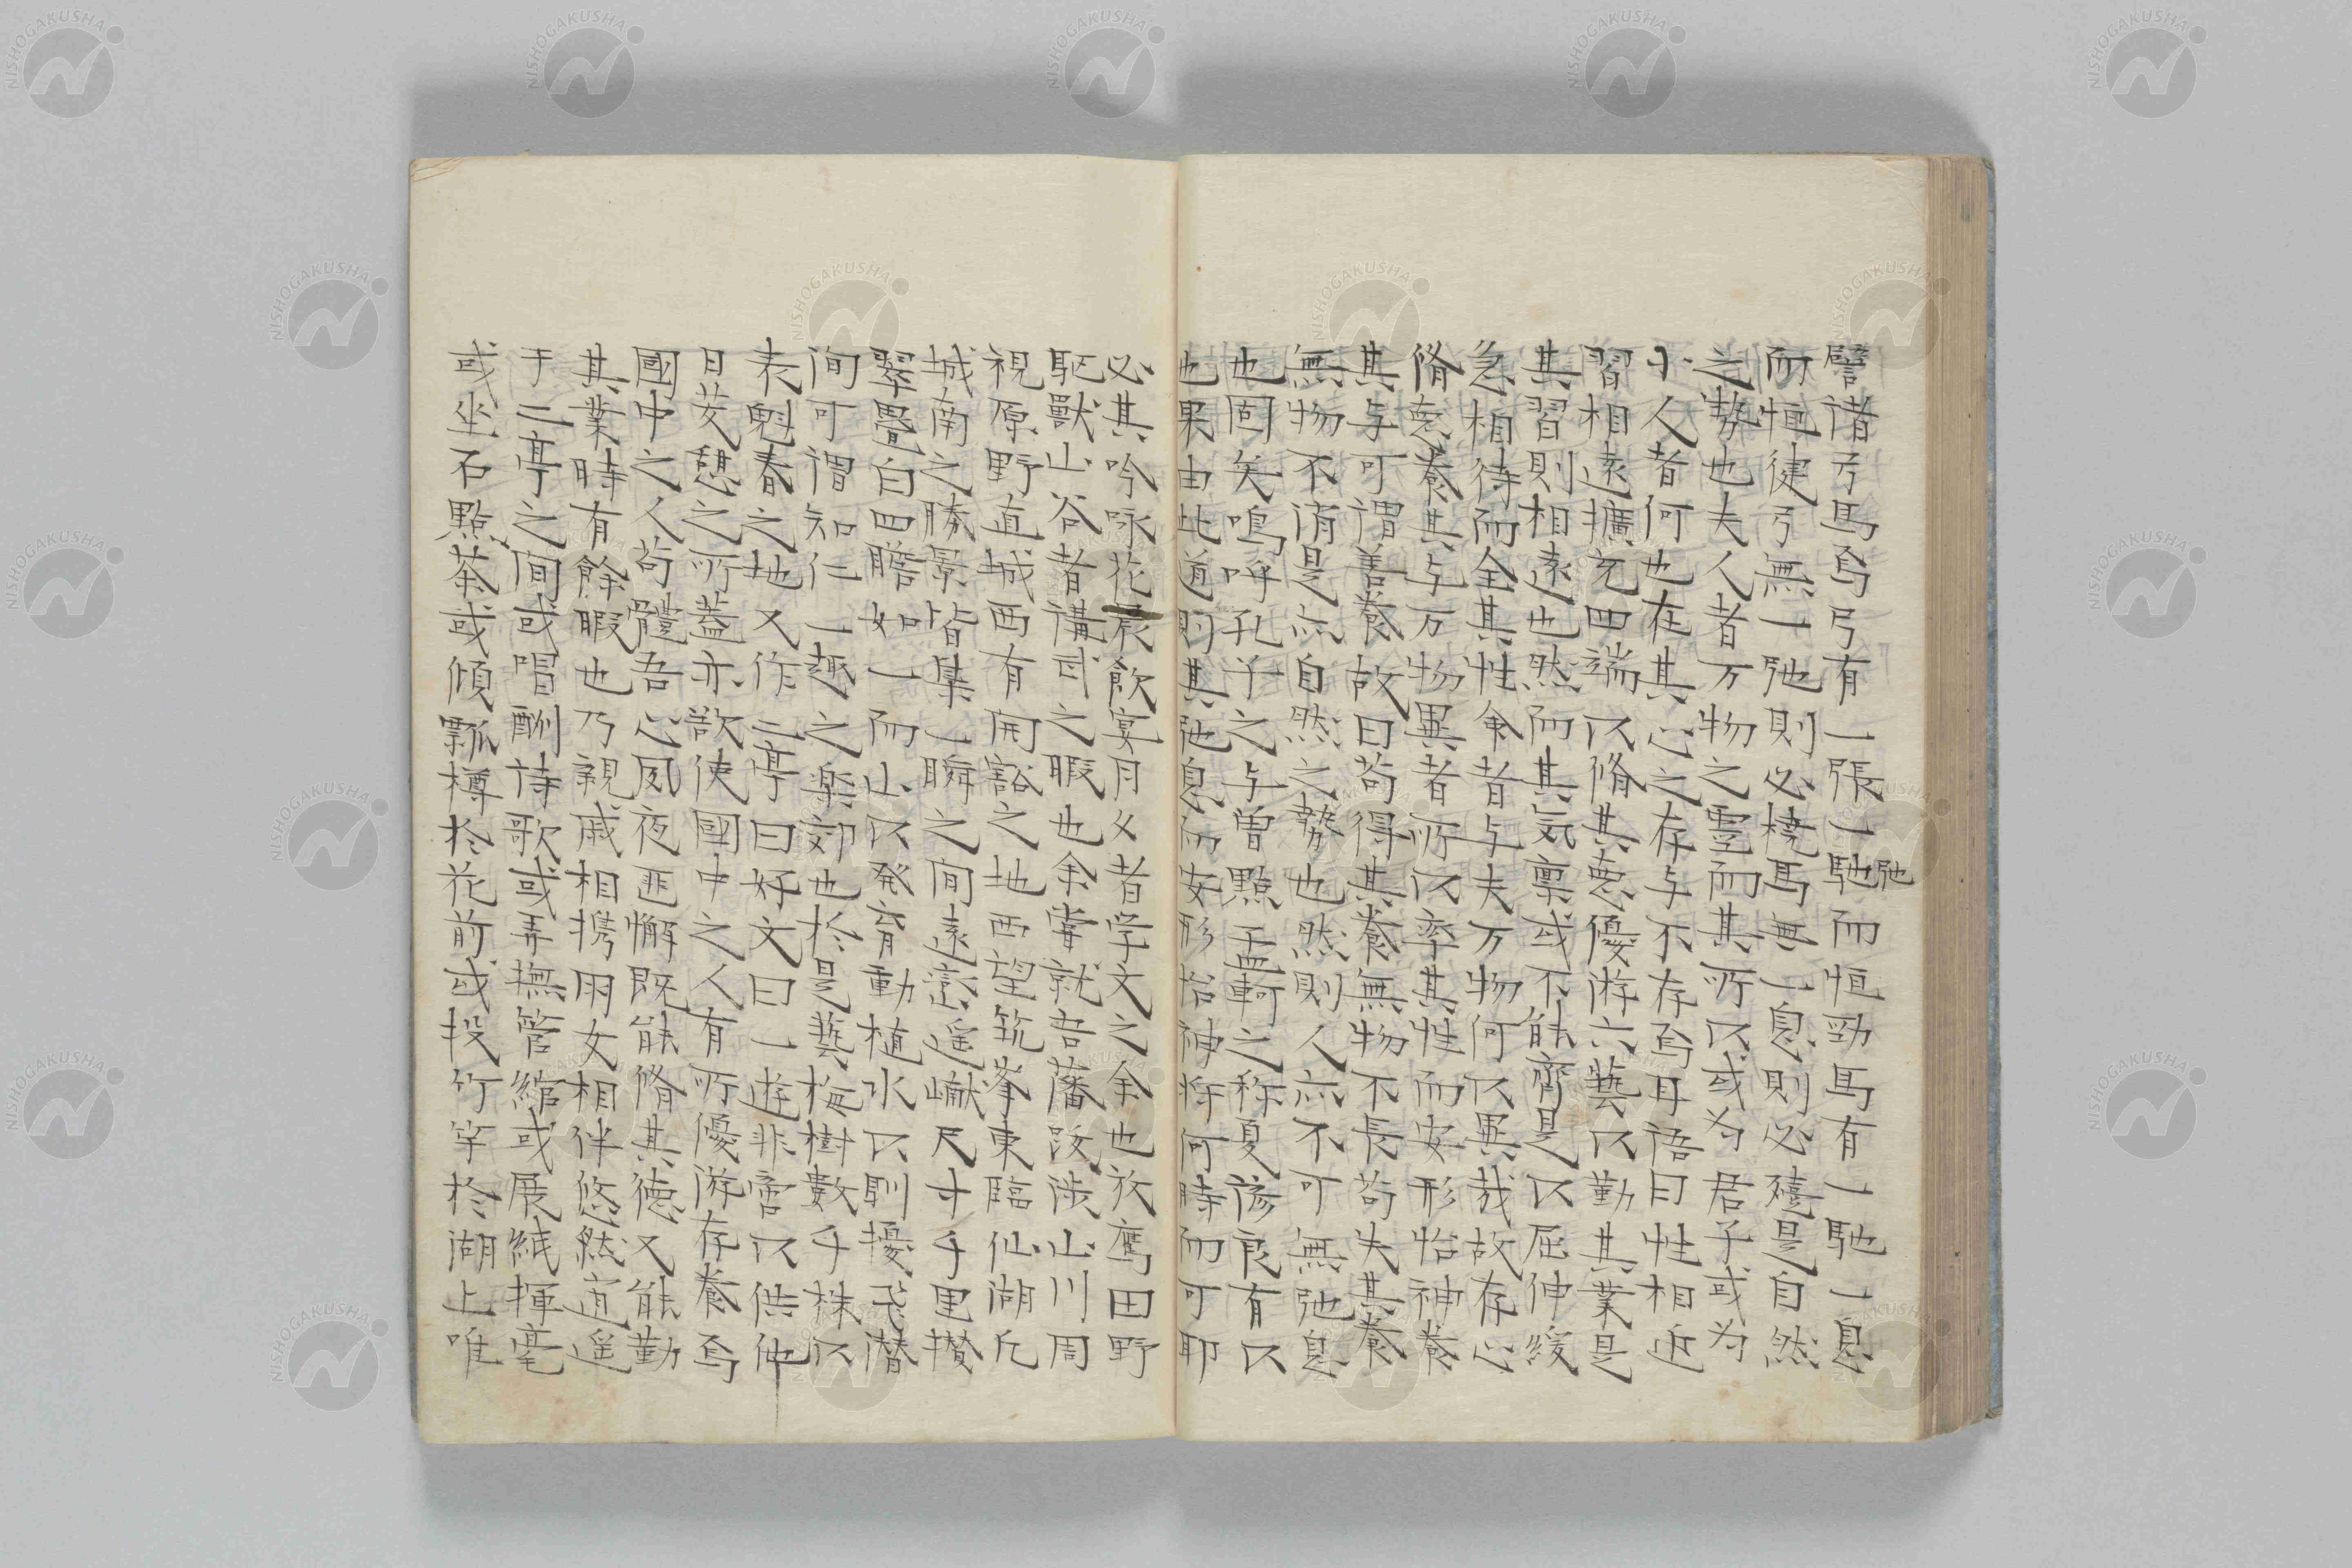 譬諸弓馬焉弓有一張一馳而恒勁馬有一馳一息
弛
而恒健弓無一弛則必橈馬無一息則必殪是自然
之勢也夫人者万物之霊而其所以或為君子或為
小人者何也在其心之存与不存焉耳語曰性相近
習相遠擴充四端以脩其悳優游六藝以勤其業是
其習則相遠也然而其気禀或不能齊是以屈伸緩
急相待而全其性命者与夫万物何以異哉故存心
脩悳養其与万物異者所以率其性而安形怡神養
其与可謂善養故曰苟得其養無物不長苟失其養
無物不消是亦自然之勢也然則人亦不可無弛息
也固矣嗚呼孔子之与曽點孟軻之称夏諺良有以
也果由此道則其弛息而安形怡神将何時而可耶
必其吟咏花晨飲宴月夕者学文之余也放鷹田野
駆獣山谷者講武之暇也余嘗就吾藩跋渉山川周
視原野直城西有開豁之地西望筑峯東臨仙湖凡
城南之勝景皆集一瞬之間遠巒遥巘尺寸千里攅
翠疊白四瞻如一而山以発育動植水以馴擾飛潜
洵可謂知仁一趣之楽郊也於是藝梅樹数千株以
表魁春之地又作二亭曰好文曰一遊非啻以供他
日茇憩之所蓋亦欲使國中之人有所優游存養焉
國中之人苟體吾心夙夜匪懈既能脩其徳又能勤
其業時有餘暇也乃親戚相携朋女相伴悠然逍遥
于二亭之間或唱酬詩歌或弄撫管絃或展紙揮毫
或坐石點茶或傾瓢樽於花前或投竹竿於湖上唯